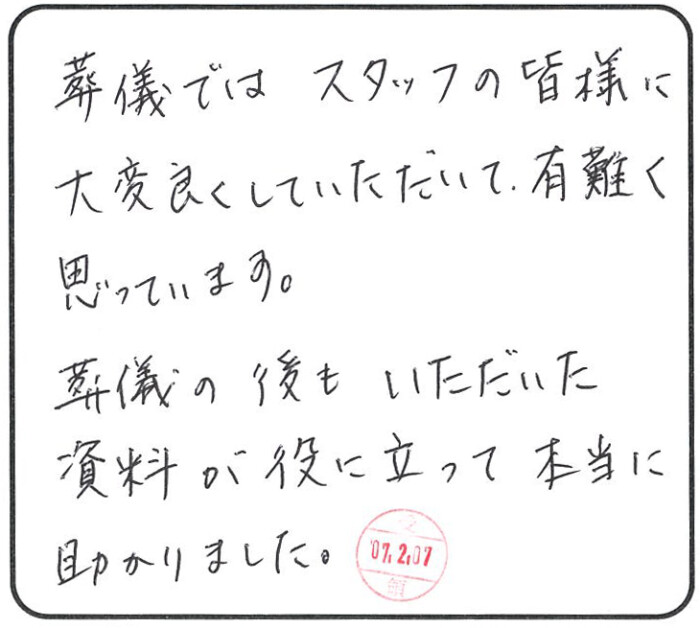 葬儀では スタッフの皆様に
大変良くしていただいて、有難く
思っています。
葬儀の後も いただいた
資料が役に立って 本当に
助かりました。
受
'07.2.07
領